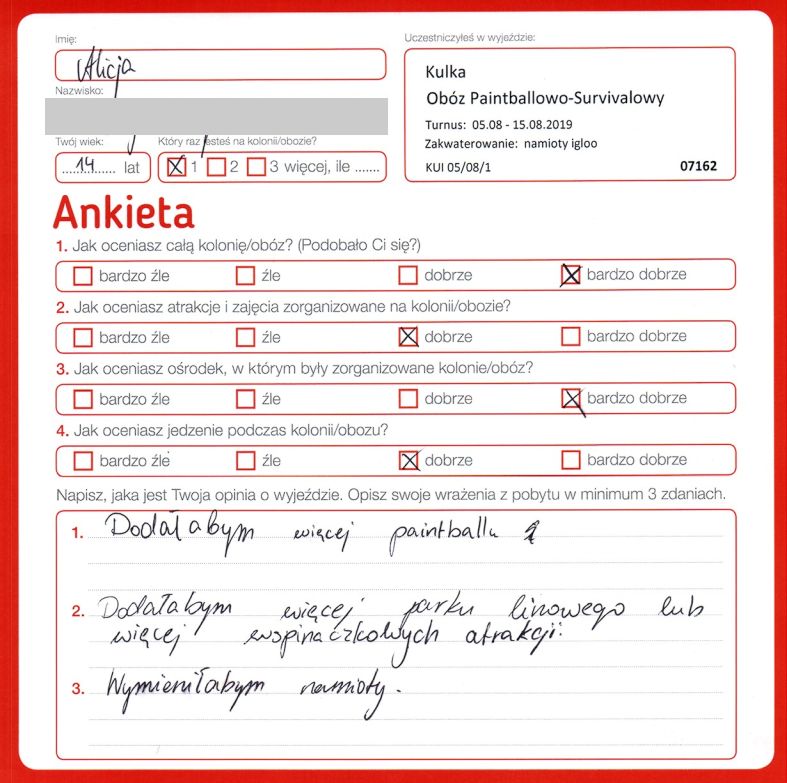 imię:
Alicja
Nazwisko:
Twój wiek:
14 lat
Który raz jesteś na kolonii/obozie?
1 2 3 więcej, ile .......
Uczestniczyłeś w wyjeździe:
Kulka
Obóz Paintballowo-Survivalowy
Turnus: 05.08 - 15.08.2019
Zakwaterowanie: namioty igloo
KUI 05/08/1 07162
Ankieta
1. Jak oceniasz całą kolonię/obóz? (Podobało Ci się?)
bardzo źle źle dobrze bardzo dobrze
2. Jak oceniasz atrakcje i zajęcia zorganizowane na kolonii/obozie?
bardzo źle źle dobrze bardzo dobrze
3. Jak oceniasz ośrodek, w którym były zorganizowane kolonie/obóz?
bardzo źle źle dobrze bardzo dobrze
4. Jak oceniasz jedzenie podczas kolonii/obozu?
bardzo źle źle dobrze bardzo dobrze
Napisz, jaka jest Twoja opinia o wyjeździe. Opisz swoje wrażenia z pobytu w minimum 3 zdaniach.
1. Dodałabym więcej paintballu
2. Dodałabym więcej parku linowego lub
więcej wspinaczkowych atrakcji.
3. Wymieniłabym namioty.